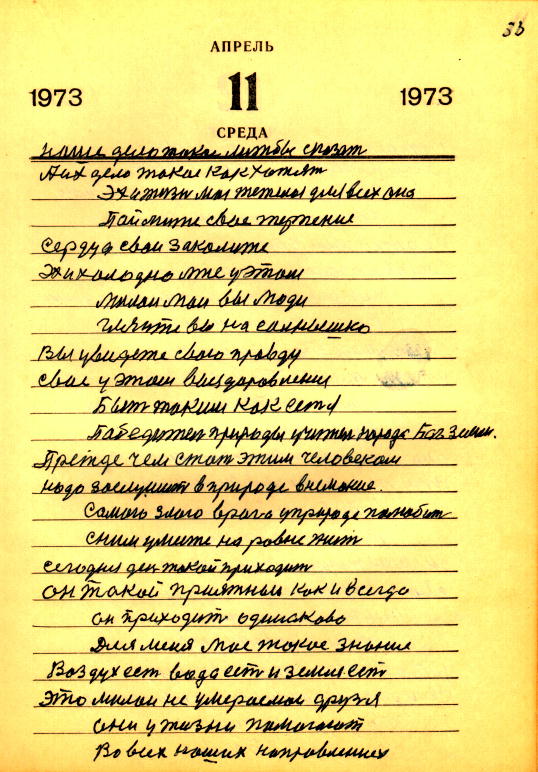 33
АПРЕЛЬ
1973 11 1973
СРЕДА
наше дело такое лижбы спозат
А их дело такое как хотят
Эхи жизн моя тежелоя для всех она
Поймите свое терпение
Сердца свои заколите
Эхи холодно мне у этом
милаи мои вы люди
глятите вы на солнышко
Вы увидете свою правду
свое у этом выздоровление
Быт таким как есть
Победител природы учител народа Бог земли.
Прежде чем стат этим человеком
надо заслужит в природе внемание.
Самого злого врага у природе полюбит
сним умете на ровне жит
сегодня ден такой приходит
он такой приятный как и всегда
он приходит одинаково
Для меня мое такое знание
Воздух ест вода ест и земля ест
Это милаи не умераемаи друзя
они у жизни помогают
Во всех наших направлениях